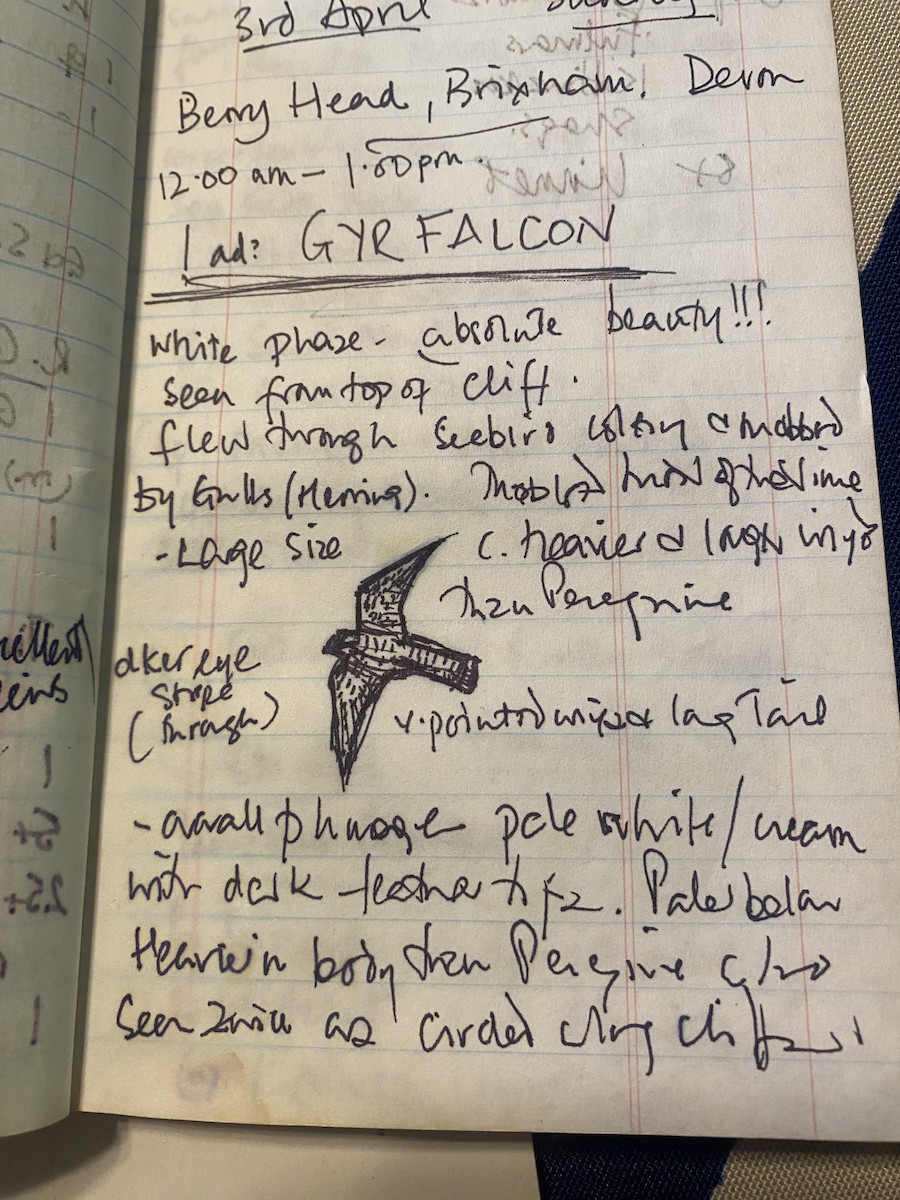 3rd April
Berry Head, Brixham, Devon
12.00 am - 1.00pm.
1 ad? GYR FALCON
White phaze - absolute beauty!!!
seen from top of cliff.
flew through Seebird colony & mobbed
by Gulls (Herring). Mobbed most of the time
- Large size
c. heavier & larger in
than Peregrine
dker eye
stripe
(through)
v. pointed wings & long Tail
- overall plumage pale white/cream
with dark feather tips. Paler below
Heavier in body than Peregrine also
seen 2 as circled along cliffs